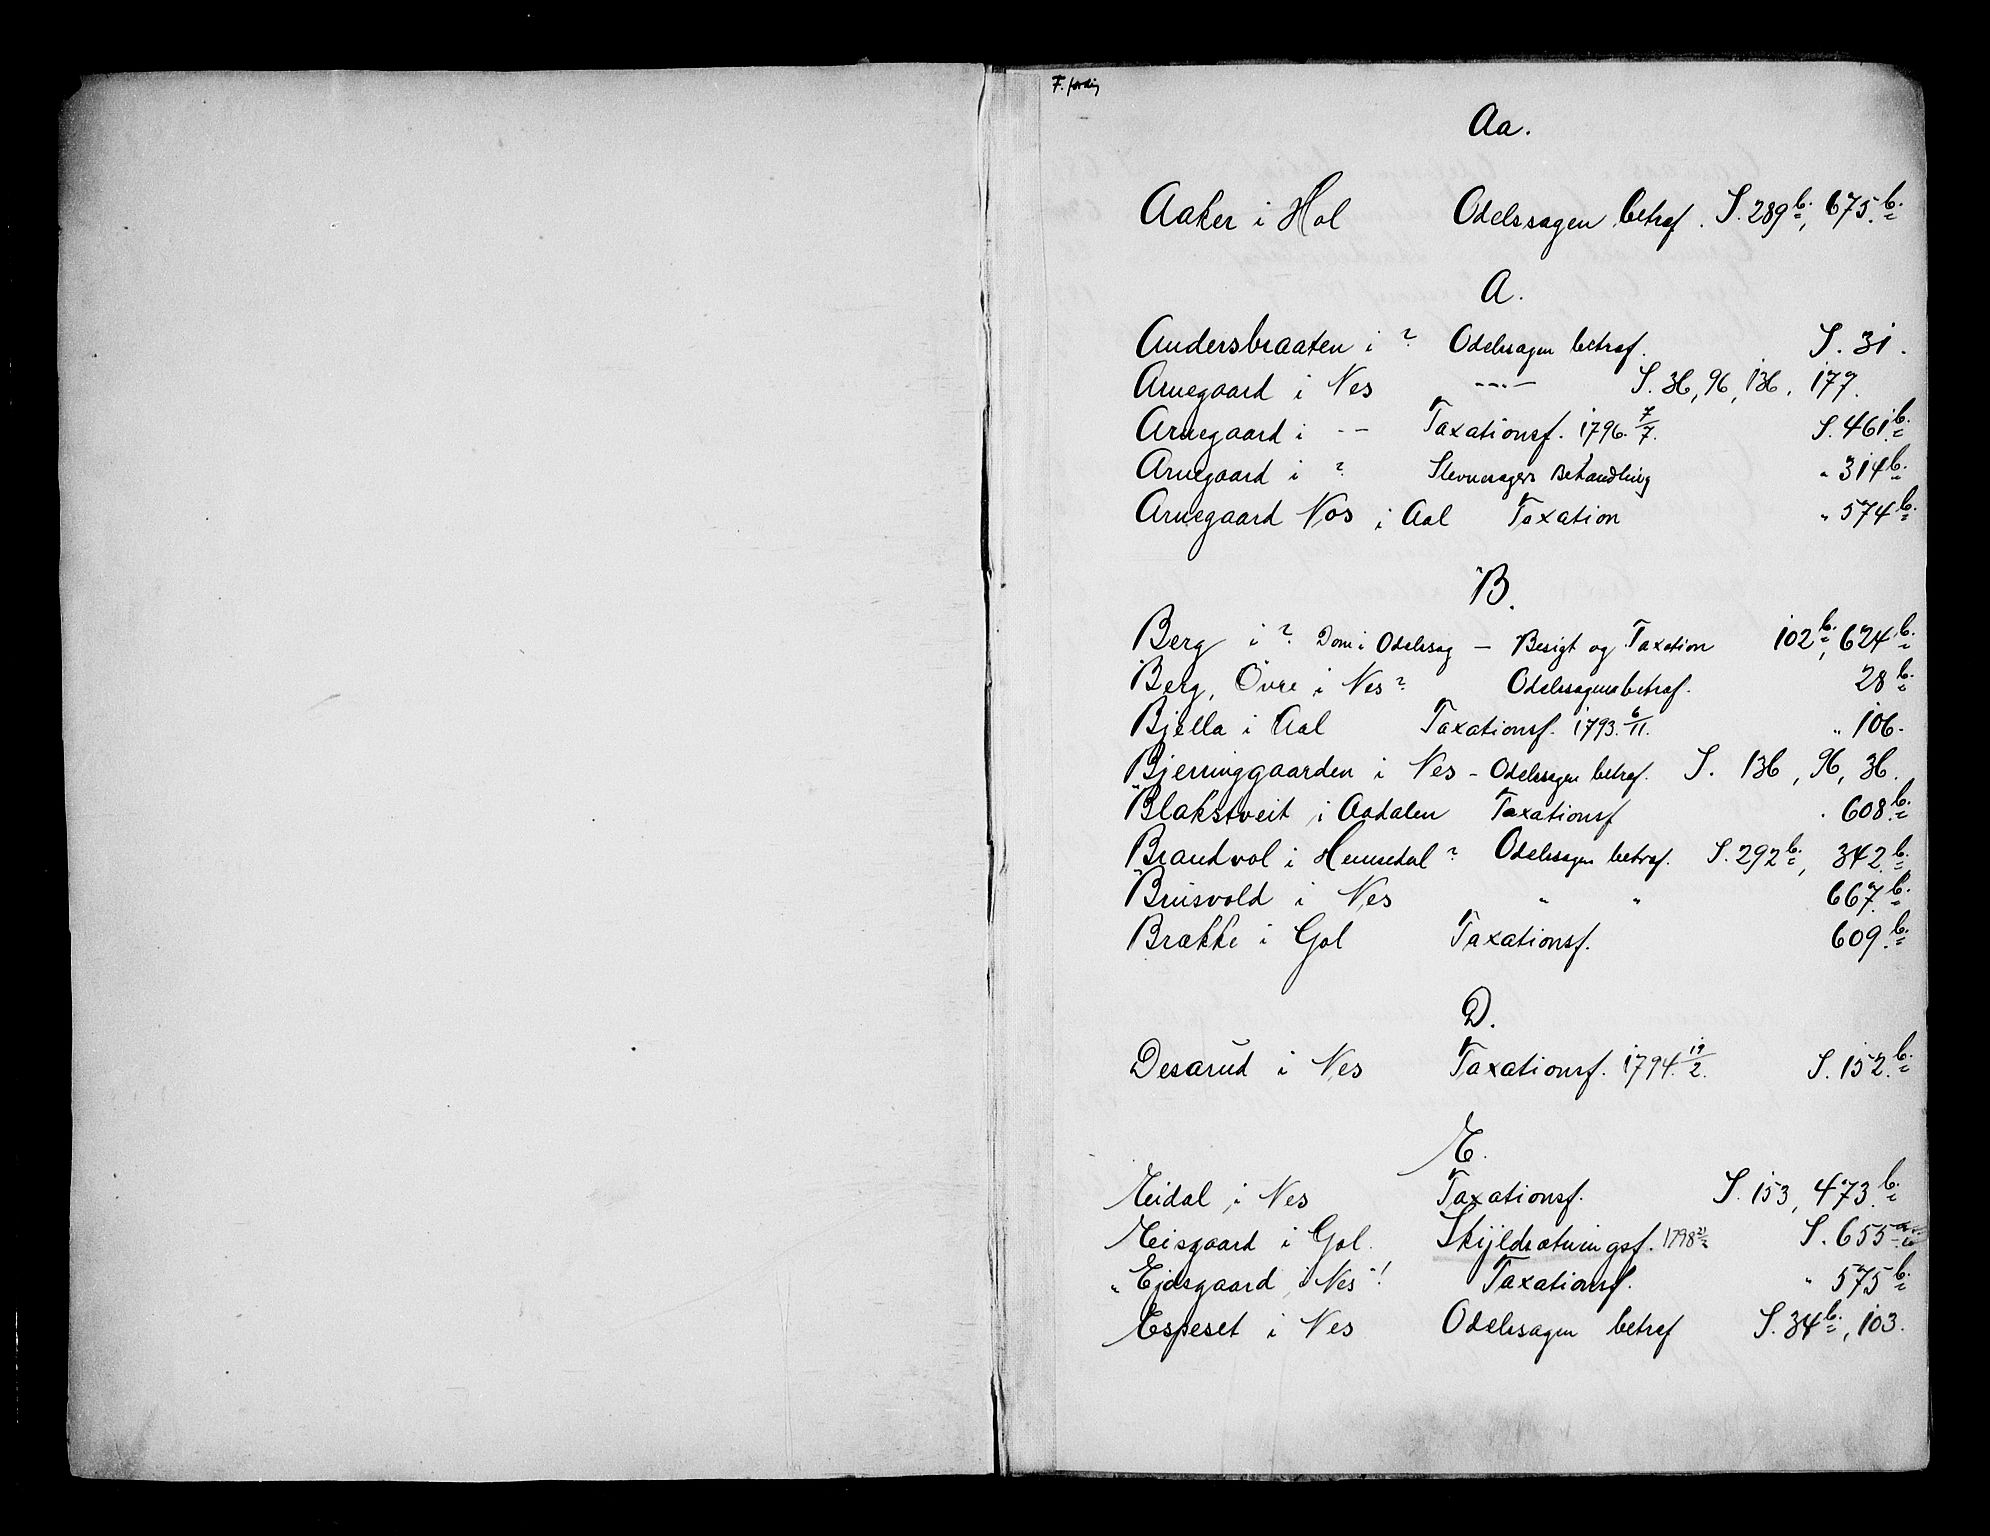 Aa.
Aaker i Hol Odelssagen betræf. S. 289 b., 675. b.
A.
Andersbraaten i ? Odelssagen betræf. S. 31.
Arnegaard i Nes -..- S. 36, 96, 136, 177.
Arnegaard i -- Taxationsf. 1796. 7/7. S. 461. b.
Arnegaard i ? Stevnesagers Behandling " 314 b.
Arnegaard Nos i Aal Taxation " 574 b.
B.
Berg i ? Dom i Odelssag — Besigt og Taxation 102 b., 624 b.
Berg, Övre i Nes ? Odelssagens betræf. 28 b.
Bjella i Aal Taxationsf. 1793. 6/11. " 106.
Bjerringgaarden i Nes - Odelssagen betræf. S. 136, 96, 36.
Blakstveit i Aadalen Taxationsf " 608. b.
Brandvol i Hemsedal ? Odelssagen betræf. S. 292 b., 342. b.
Bruisvold i Nes " " 667. b.
Brække i Gol Taxationsf. 609. b.
D.
Desarud i Nes Taxationsf. 1794. 19/2. S. 152. b.
E.
Eidal i Nes Taxationsf. S. 153, 473. b.
Eisgaard i Gol. Skjyldsætningsf. 1798 S. 655
" Ejdsgaard i Nes "! Taxationsf. " 575 b.
Espeset i Nes Odelssagen betræf S. 34 b., 103.